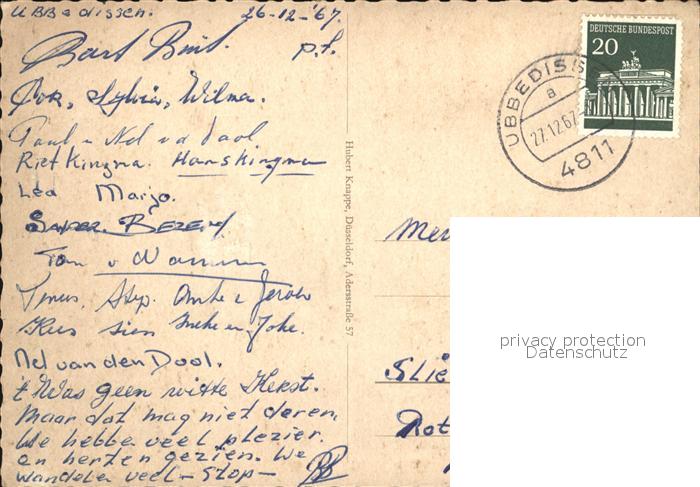 UBBedissen. 26-12-'67.
Bart
P.f.
Cor, Sylvia, Wilma.
Paul Nel v d Dool
Riet Kingma. Hans Kingma
Lea Marjo.
Sander. Bezem
Ton v
Step. Anke Jeroen
Kees sien Ineke en Joke.
Nel van den Dool.
't Was geen witte Kerst.
Maar dat mag niet deren.
We hebbe veel plezier.
en herten gezien. We
wandelen veel - stop -
Hubert Knappe, Düsseldorf, Adersstraße 57
DEUTSCHE BUNDESPOST
20
UBBEDISS
a
27.12.67
4811
Mev
Slie
Rot
privacy protection
Datenschutz